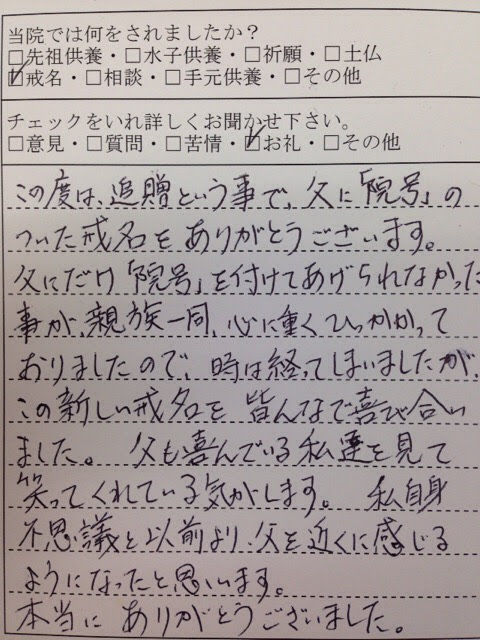 当院では何をされましたか？
□先祖供養・□水子供養・□祈願・□土仏
☑戒名・□相談・□手元供養・□その他
チェックをいれ詳しくお聞かせ下さい。
□意見・□質問・□苦情・☑お礼・□その他
この度は、追贈という事で、父に「院号」の
ついた戒名を ありがとうございます。
父にだけ「院号」を付けてあげられなかった
事が、親族一同、心に重くひっかかって
おりましたので、時は経ってしまいましたが、
この新しい戒名を 皆んなで喜び合い
ました。 父も喜んでいる私達を見て
笑ってくれている気がします。 私自身
不思議と以前より、父を近くに感じる
ようになったと思います。
本当に ありがとうございました。